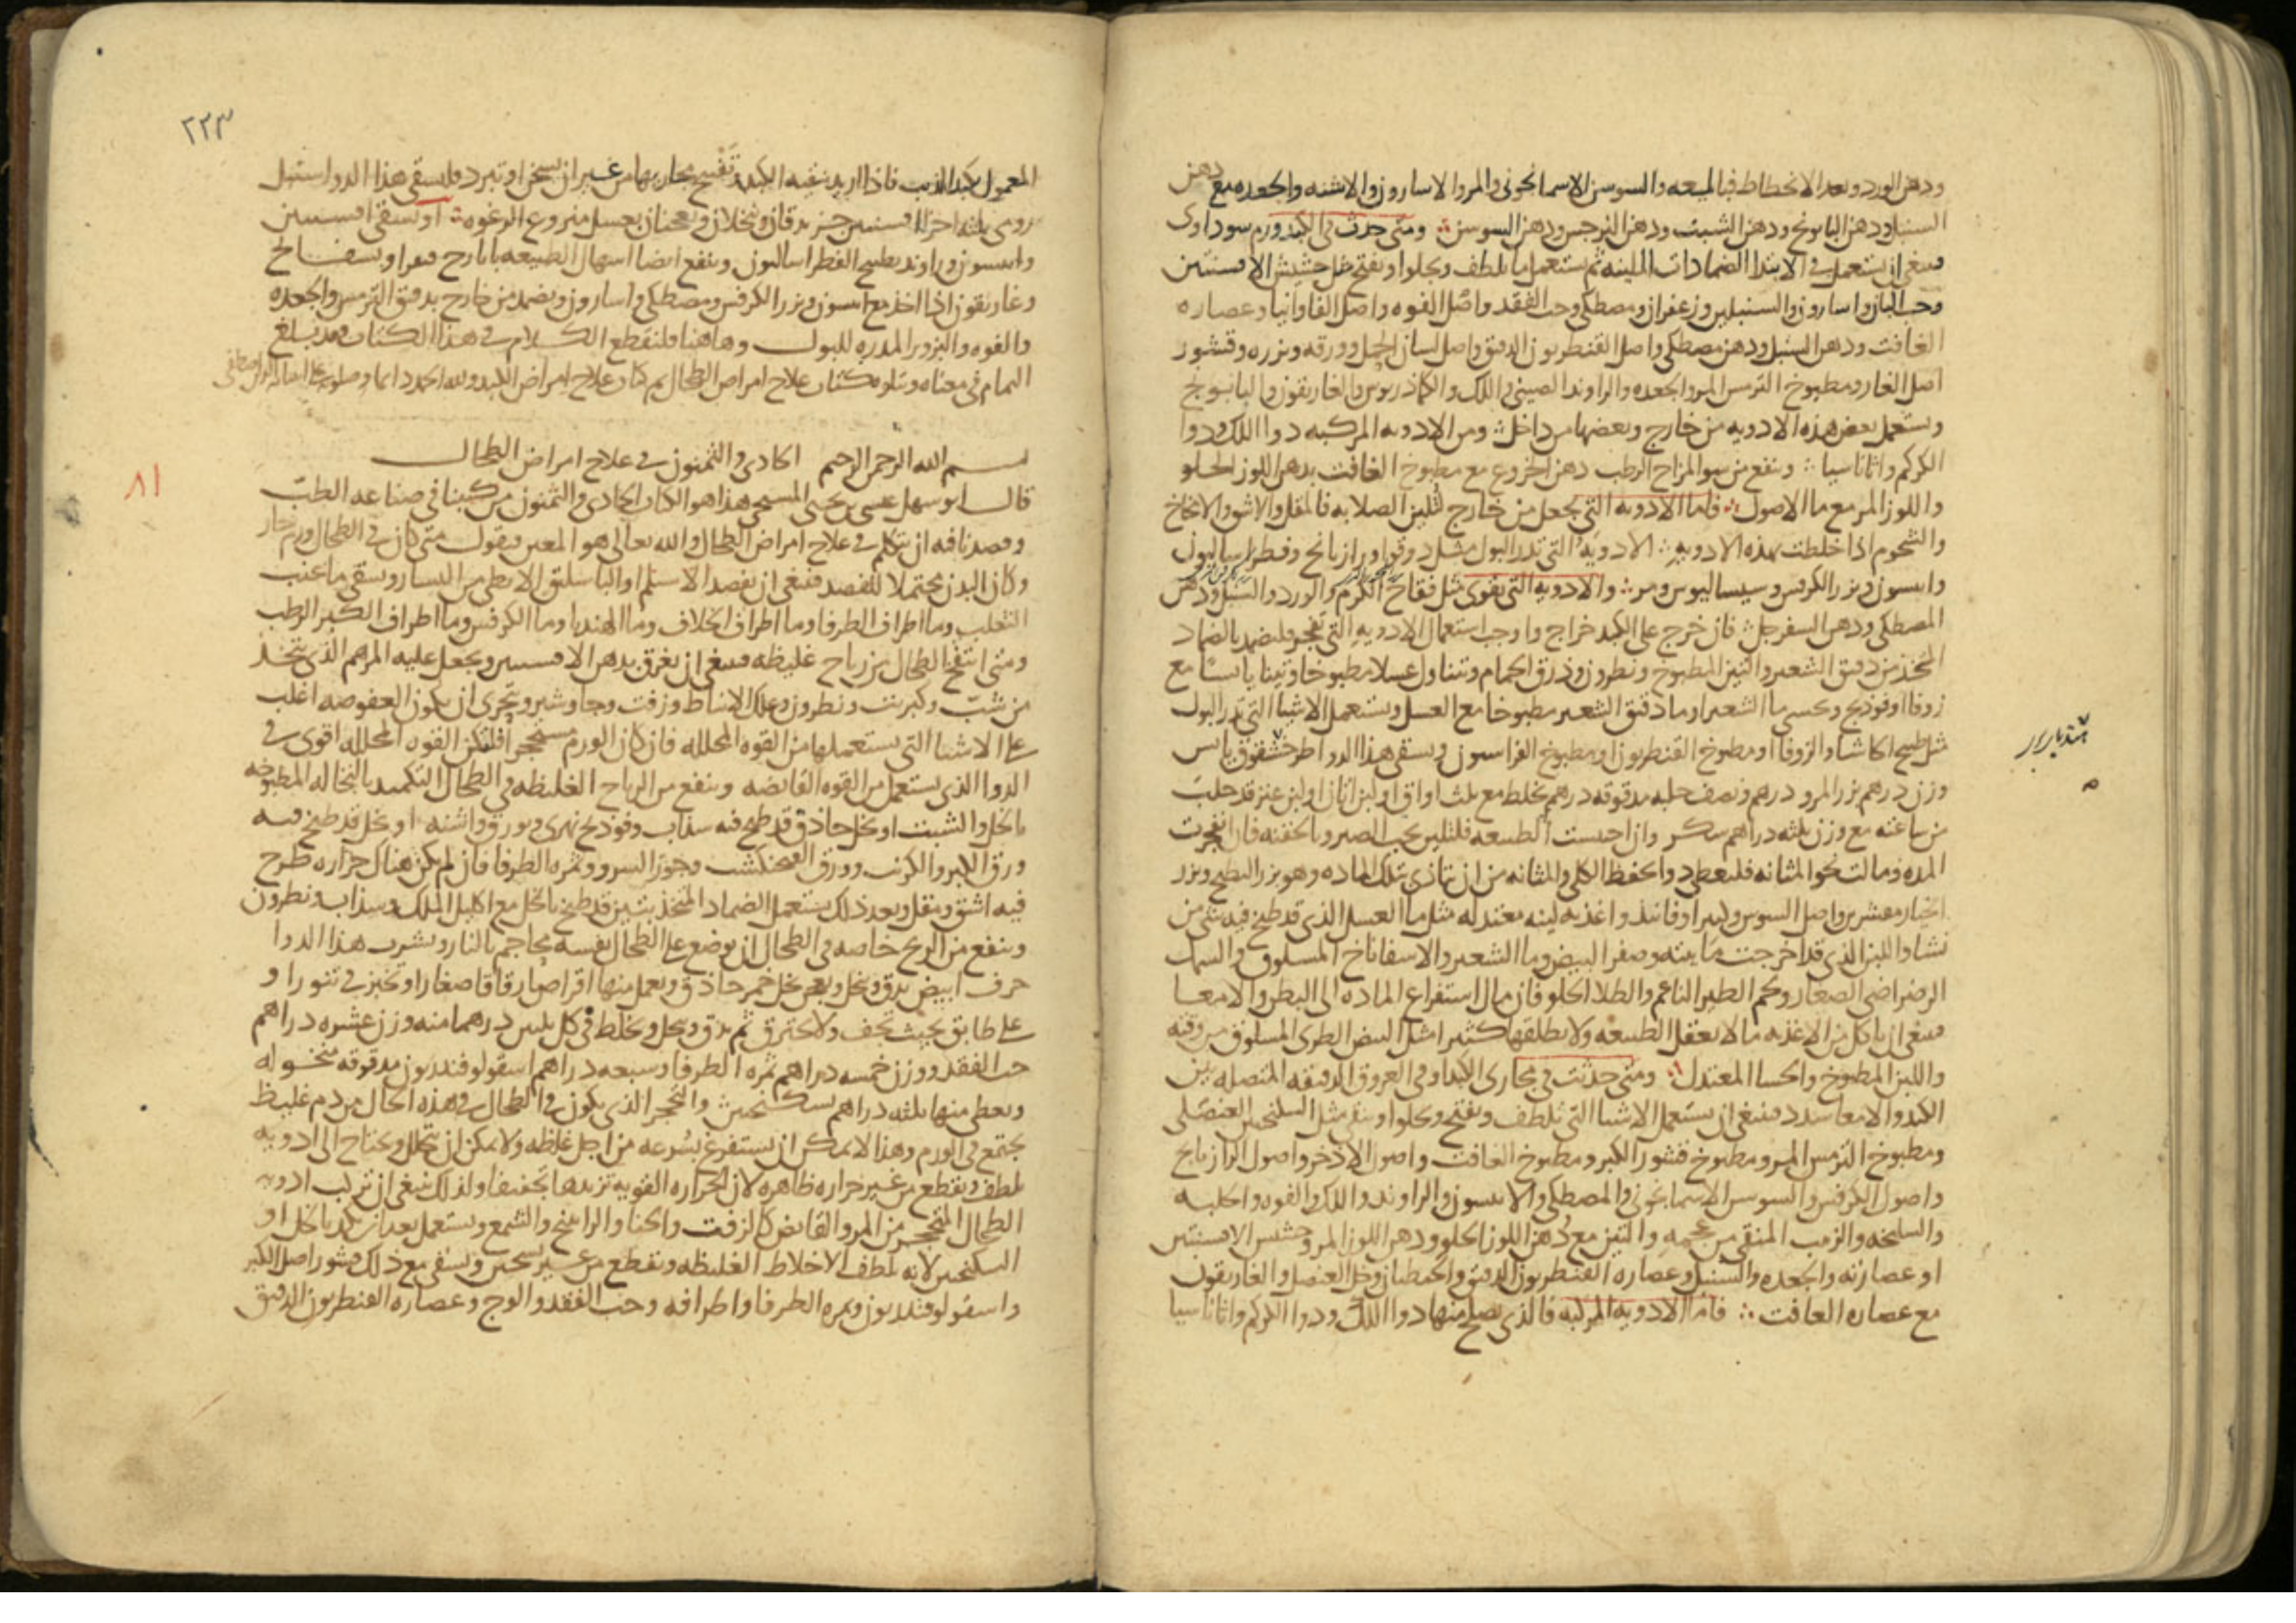 ودهن الورد وبعد الانحطاط فبالميعه والسوسن الاسمانجونى والمر والاسارون والاشنه والجعده مع دهن
السنبل ودهن البابونج ودهن الشبت ودهن النرجس ودهن السوسن ومتى حدث فى الكبد ورم سوداوى
فينبغى ان يستعمل فى الابتدا الضمادات الملينه ثم يستعمل ما يلطف ويجلوا ويفتح مثل حشيش الافسنتين
وحب البان واسارون والسنبلين وزعفران ومصطكى وحب الفقد واصل الفوه واصل الفاوانيا وعصاره
الغافت ودهن السنبل ودهن مصطكى واصل القنطريون الدقيق واصل لسان الحمل وورقه وبزره وقشور
اصل الغار ومطبوخ الترمس المر والجعده والراوند الصينى واللك والكماذريوس والغاريقون والبابونج
ويستعمل بعض هذه الادويه من خارج وبعضها من داخل ومن الادويه المركبه دوا اللك ودوا
الكركم واثاناسيا وينفع من سو المزاج الرطب دهن الخروع مع مطبوخ الغافت بدهن اللوز الحلو
واللوز المر مع ما الاصول فاما الادويه التى تجعل من خارج لتليين الصلابه فالمقل والاشق والامخاخ
والشحوم اذا خلطت بهذه الادويه الادويه التى تدر البول مثل دوقوا ورازيانج وفطراساليون
وانيسون وبزر الكرفس وسيساليوس ومر والادويه التى تقوى مثل فقاح الكرم والورد والسنبل ودهن
المصطكى ودهن السفرجل فان خرج على الكبد خراج واوجب استعمال الادويه التى تفجر فليضمد بالضماد
المتخذ من دقيق الشعير والتين المطبوخ ونطرون وذرق الحمام ويتناول عسلا مطبوخا وتينا يابسا مع
زوفا او فوذنج ويحسى ما الشعير او ما دقيق الشعير مطبوخا مع العسل ويستعمل الاشيا التى تدر البول
مثل طبيخ الحاشا والزوفا او مطبوخ القنطريون او مطبوخ الفراسيون ويسقى هذا الدوا طرحشقوق يابس
وزن درهم بزر المرو درهم ونصف حلبه مدقوقه درهم يخلط مع ثلث اواق لبن اتان او لبن عنز قد حلب
من ساعته مع وزن ثلثه دراهم سكر وان احتبست الطبيعه فلتلين بحب الصبر وبالحقنه فان انفجرت
المده ومالت نحو المثانه فليعطى دوا يحفظ الكلى والمثانه من ان تتاذى بتلك الماده وهو بزر البطيخ وبزر
الخيار مقشرين واصل السوس وكثيرا وفانيذ واغذيه لينه معتدله مثل ما العسل الذى قد طبخ فيه شى من
نشا واللبن الذى قد اخرجت مائيته وصفر البيض وما الشعير والاسفاناخ المسلوق والسمك
الرضراضى الصغار ولحم الطير الناعم والطلا الحلو فان مال استفراغ الماده الى البطن والامعا
فينبغى ان ياكل من الاغذيه ما لا يعقل الطبيعه ولا يطلقها كثيرا مثل البيض الطرى المسلوق مرقوقه
واللبن المطبوخ والحسا المعتدل ومتى حدثت فى مجارى الكبد وفى العروق الدقيقه المتصله بين
الكبد والامعا سدد فينبغى ان يستعمل الاشيا التى تلطف وتفتح وتجلوا وتنقى مثل السكنجبين العنصلى
ومطبوخ الترمس المر ومطبوخ قشور الكبر ومطبوخ الغافت واصول الاذخر واصول الرازيانج
واصول الكرفس والسوسن الاسمانجونى والمصطكى والانيسون والراوند واللك والفوه والحلبه
والسليخه والزبيب المنقى من عجمه والتين مع دهن اللوز الحلو ودهن اللوز المر وحشيش الافسنتين
او عصارته والجعده والسنبل وعصاره القنطريون الدقيق والجنطيان وخل العنصل والغاريقون
مع عصاره الغافت فاما الادويه المركبه فالذى يصلح منها دوا اللك ودوا الكركم واثاناسيا
٢٢٣
المعمول بكبد الذيب فاذا اريد تنقيه الكبد وتفتيح مجاريها من غير ان يسخن او تبرد فليسقى هذا الدوا سنبل
رومى ثلثه اجزا افسنتين جز يدقان وينخلان ويعجنان بعسل منزوع الرغوه او يسقى افسنتين
وانيسون وراوند بطبيخ الفطراساليون وينفع ايضا اسهال الطبيعه بايارج فيقرا وبسفايج
وغاريقون اذا اخذ مع انيسون وبزر الكرفس ومصطكى واسارون ويضمد من خارج بدقيق الترمس والجعده
والفوه والبزور المدره للبول وهاهنا فلنقطع الكلام فى هذا الكتاب فقد بلغ
التمام فى معناه ويتلوه كتاب علاج امراض الطحال تم كتاب علاج امراض الكبد ولله الحمد دائما
٨١
بسم الله الرحمن الرحيم الحادى والثمنون فى علاج امراض الطحال
قال ابو سهل عيسى بن يحيى المسيحى هذا هو الكتاب الحادى والثمنون من كتبنا فى صناعه الطب
وقصدنا فيه ان نتكلم فى علاج امراض الطحال والله تعالى هو المعين فنقول متى كان فى الطحال ورم حار
وكان البدن محتملا للفصد فينبغى ان يفصد الاسيلم او الباسليق الابطى من اليسار ويسقى ما عنب
الثعلب وما اطراف الطرفا وما اطراف الخلاف وما الهندبا وما الكرفس وما اطراف الكبر الرطب
ومتى انتفخ الطحال من رياح غليظه فينبغى ان يغرق بدهن الافسنتين ويجعل عليه المرهم الذى يتخذ
من شب وكبريت ونطرون وعلك الانباط وزفت وجاوشير ويتحرى ان يكون العفوصه اغلب
على الاشيا التى يستعملها من القوه المحلله فان كان الورم متحجرا فلتكن القوه المحلله اقوى فى
الدوا الذى يستعمل من القوه القابضه وينفع من الرياح الغليظه فى الطحال التكميد بالنخاله المطبوخه
بالخل والشبت او بخل حاذق قد طبخ فيه سذاب وفوذنج نهرى وبورق واشنه او بخل قد طبخ فيه
ورق الكبر والكرنب وورق الفنجنكشت وجوز السرو وثمره الطرفا فان لم يكن هناك حراره طرح
فيه اشق ومقل وبعد ذلك يستعمل الضماد المتخذ بتين قد طبخ بالخل مع اكليل الملك وسذاب ونطرون
وينفع من الريح خاصه فى الطحال ان يوضع على الطحال نفسه محاجم بالنار ويشرب هذا الدوا
حرف ابيض يدق وينخل ويعجن بخل خمر حاذق ويعمل منها اقراصا رقاقا صغارا وتخبز فى تنور او
على طابق بحيث تجف ولا تحترق ثم يدق وينخل ويخلط فى كل ثلثين درهما منه وزن عشره دراهم
حب الفقد ووزن خمسه دراهم ثمره الطرفا وسبعه دراهم اسقولوفندريون مدقوقه منخوله
ويعطى منها ثلثه دراهم بسكنجبين والتحجر الذى يكون فى الطحال فى هذه الحال من دم غليظ
يجتمع فى الورم وهذا لا يمكن ان يستفرغ بسرعه من اجل غلظه ولا يمكن ان يتحلل ويحتاج الى ادويه
تلطف وتقطع من غير حراره ظاهره لان الحراره القويه تزيدها تجفيفا ولذلك ينبغى ان تركب ادويه
الطحال المتحجر من المر والقابض كالزفت والحنا والراتينج والشمع ويستعمل بعد ان يكمد بالخل او
السكنجبين لانه يلطف الاخلاط الغليظه ويقطع من غير تسخين ويسقى مع ذلك قشور اصل الكبر
واسقولوفندريون وثمره الطرفا واطرافه وحب الفقد والوج وعصاره القنطريون الدقيق